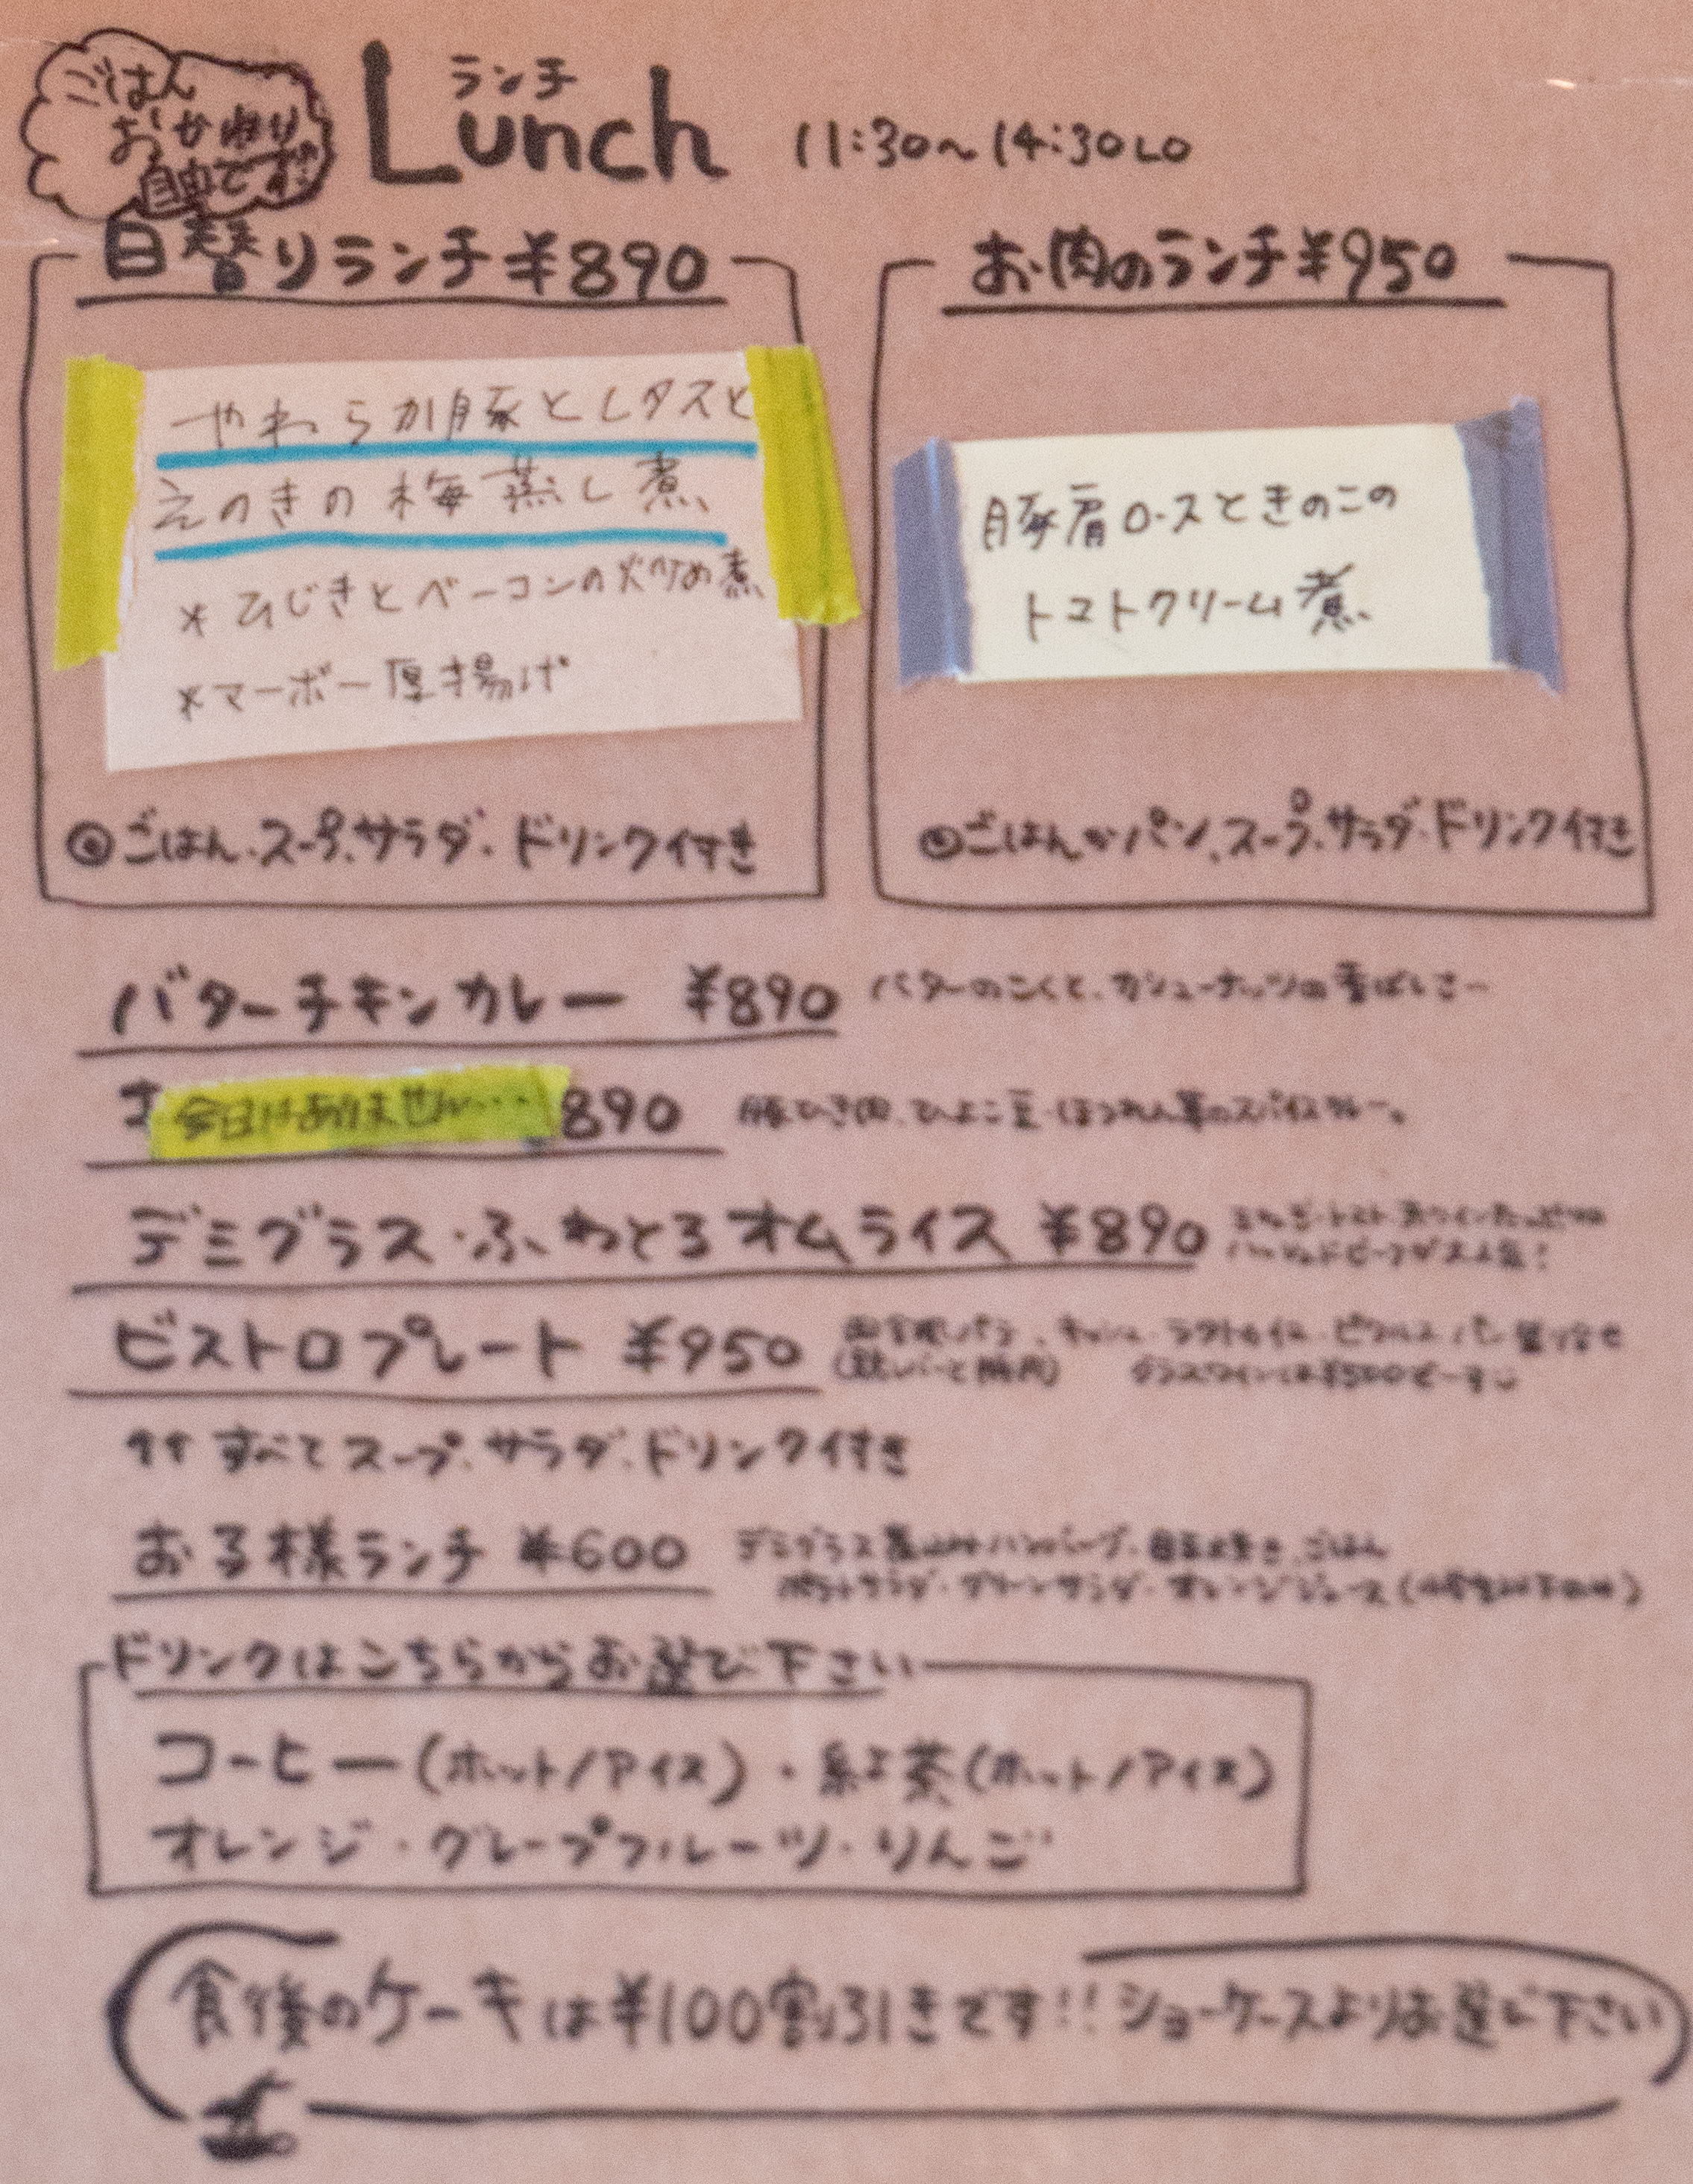 ごはん
おかわり
自由です!!
ランチ
Lunch 11:30〜14:30LO
日替りランチ¥890
やわらか豚とレタスと
えのきの梅蒸し煮
*ひじきとベーコンの炒め煮
*マーボー厚揚げ
◎ごはん.スープ.サラダ.ドリンク付き
お肉のランチ¥950
豚肩ロースときのこの
トマトクリーム煮
◎ごはんかパン、スープ.サラダ.ドリンク付き
バターチキンカレー ¥890 バターのこくと、カシューナッツの香ばしさー
今日はありません… 890 豚ひき肉、ひよこ豆・ほうれん草のスパイスカレー。
デミグラス・ふわとろオムライス ¥890
ビストロプレート ¥950
↑↑すべてスープ.サラダ.ドリンク付き
お子様ランチ ¥600 デミグラス煮込みハンバーグ・目玉焼き.ごはん
ポテトサラダ・グリーンサラダ・オレンジジュース
ドリンクはこちらからお選び下さい
コーヒー(ホット/アイス)・紅茶(ホット/アイス)
オレンジ・グレープフルーツ・りんご
食後のケーキは¥100割引きです!!ショーケースよりお選び下さい